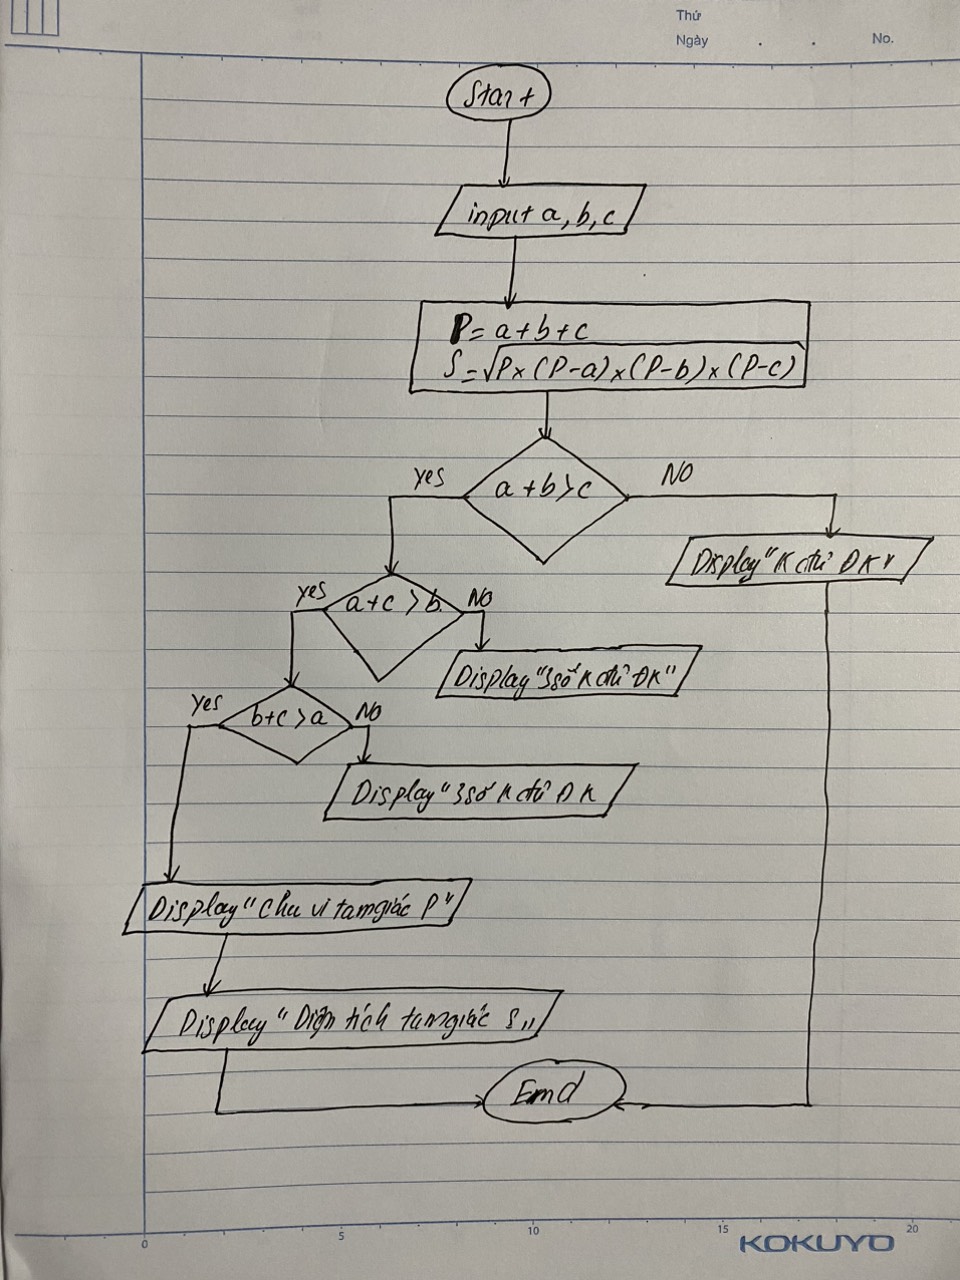 Thứ
Ngày . . No.
Start
input a, b, c
P = a + b + c
S = √P x (P-a) x (P-b) x (P-c)
a + b > c
yes
NO
Display "K đủ ĐK"
a + c > b
yes
NO
Display "3 số K đủ ĐK"
b + c > a
yes
NO
Display "3 số K đủ ĐK
Display "Chu vi tam giác P"
Display "Diện tích tam giác S"
Emd
0 5 10 15 20
KOKUYO